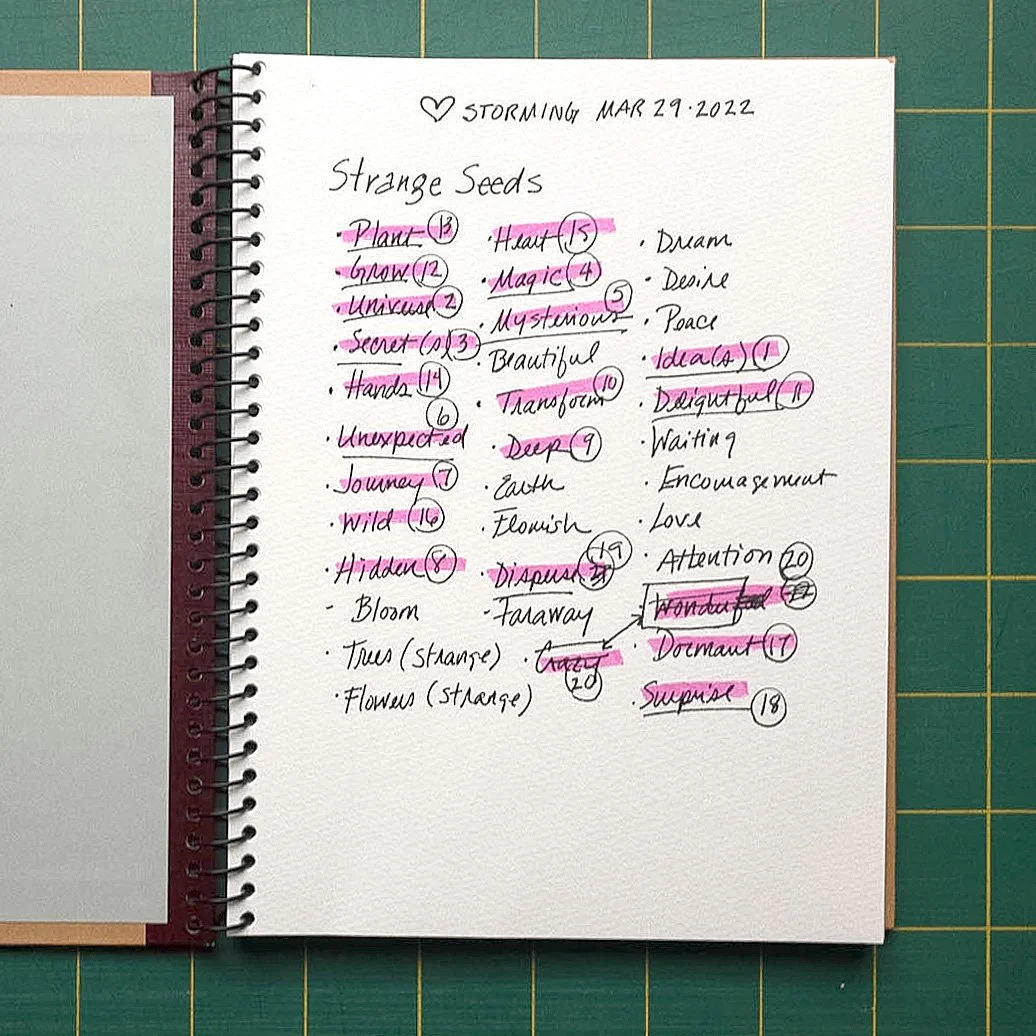 ♡ STORMING MAR 29·2022
Strange Seeds
· Plant 13
· Grow 12
· Universe 2
· Secret(s) 3
· Hands 14
· Unexpected 6
· Journey 7
· Wild 16
· Hidden 8
- Bloom
· Trees (strange)
· Flowers (strange)
· Heart 15
· Magic 4
· Mysterious 5
· Beautiful
· Transform 10
· Deep 9
· Earth
· Flourish
· Disperse 19
- Faraway
· Crazy 20
· Dream
· Desire
· Peace
· Idea(s) 1
· Delightful 11
· Waiting
· Encouragement
· Love
· Attention 20
· Wonder
· Dormant 17
· Surprise 18